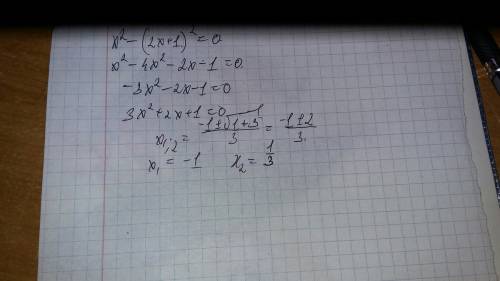 x² - (2x+1)² = 0
x² - 4x² - 2x - 1 = 0
-3x² - 2x - 1 = 0
3x² + 2x + 1 = 0
x₁,₂ = (-1±√(1+3))/3 = (-1±2)/3
x₁ = -1 x₂ = 1/3